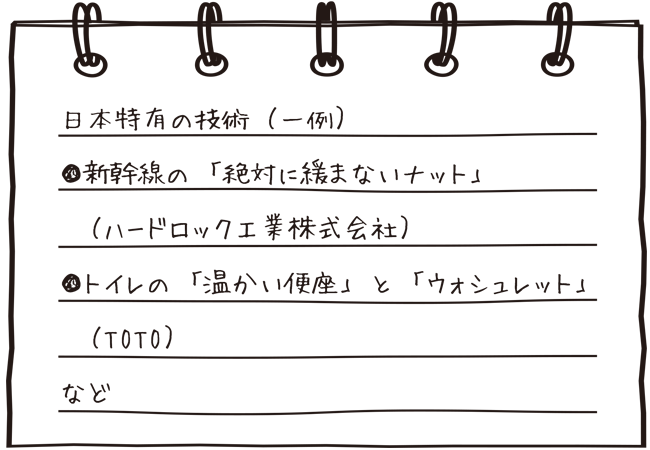 日本特有の技術（一例）
●新幹線の「絶対に緩まないナット」
（ハードロック工業株式会社）
●トイレの「温かい便座」と「ウォシュレット」
（TOTO）
など